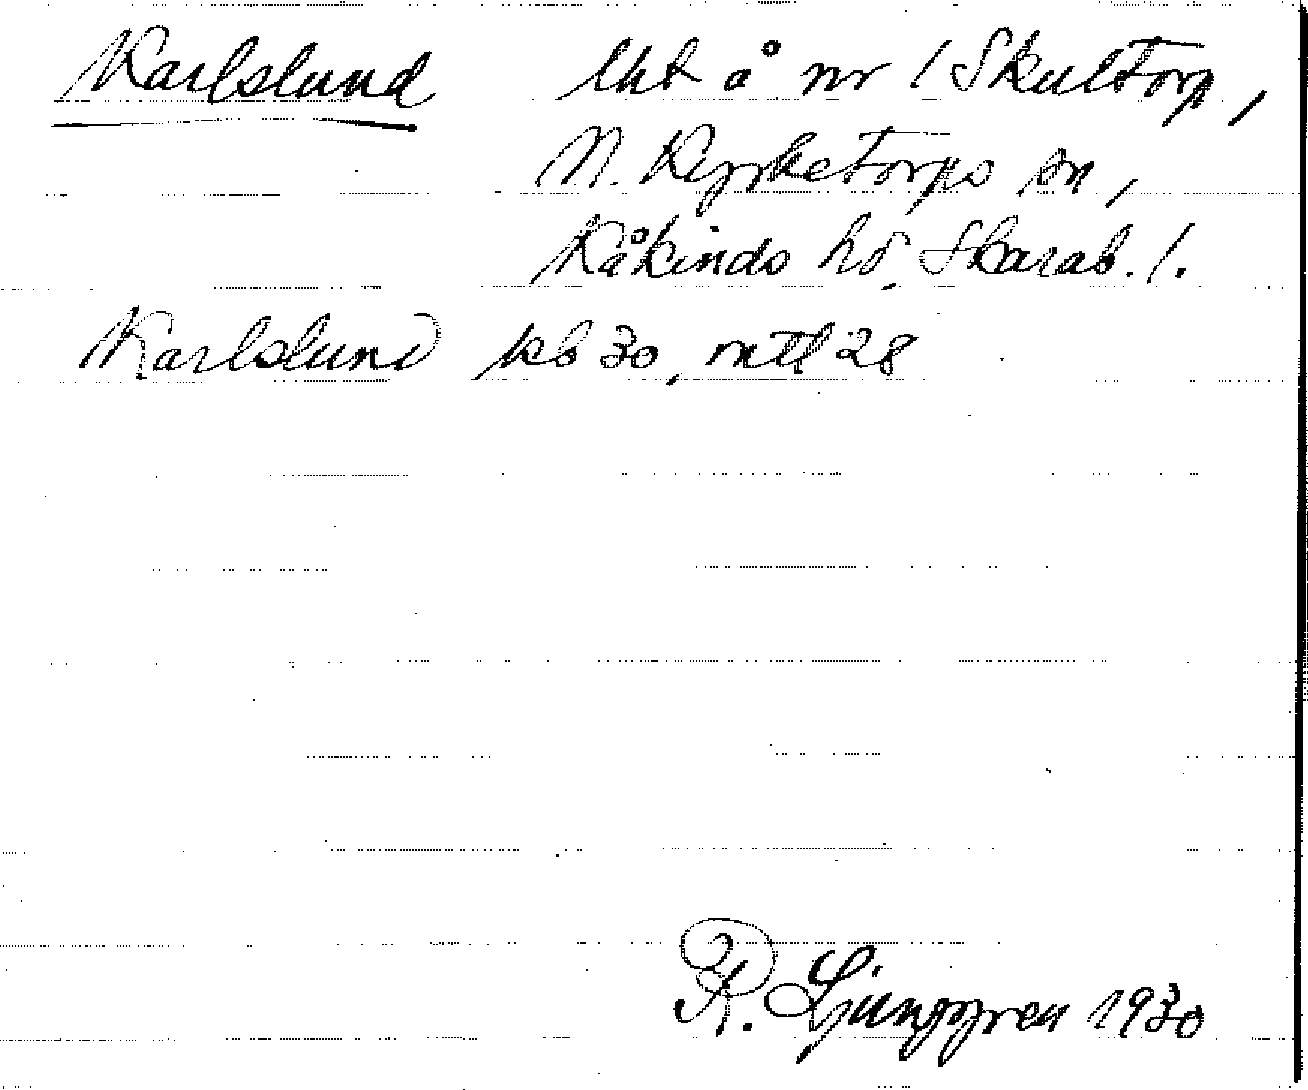 Karlslund lht å nr 1 Skultorp,
N. Kyrketorps sn,
Kåkinds hd, Skarab. l.
Karlslund kb 30, mtl 28
R. Ljunggren 1930